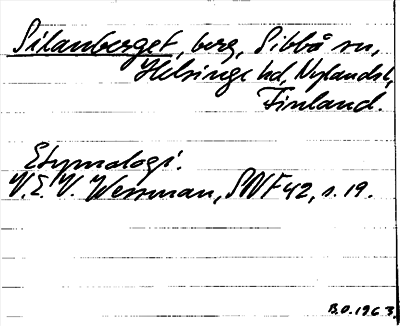 Silanberget, berg, Sibbå sn,
Helsinge hd, Nylands l,
Finland.
Etymologi.
V. E. V. Wessman, SNF 42, s. 19.
B.O. 1963.